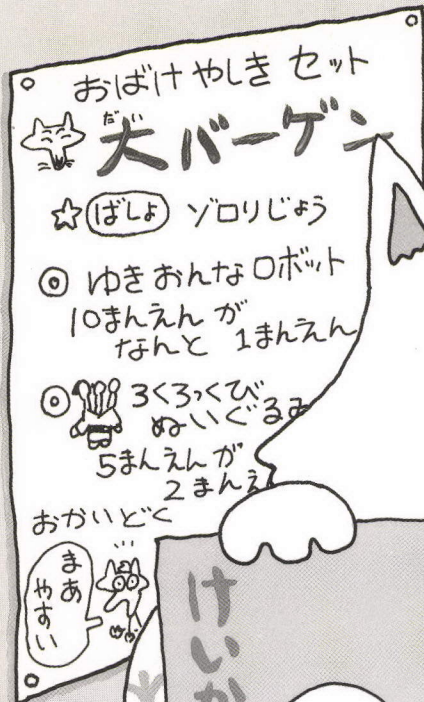 おばけやしき セット
だい
大バーゲン
☆ ばしょ ゾロリじょう
◎ ゆきおんなロボット
10まんえん が
なんと 1まんえん
◎ 3くろっくび
ぬいぐるみ
5まんえん が
2まんえ
おかいどく
まあ
やすい
けいか